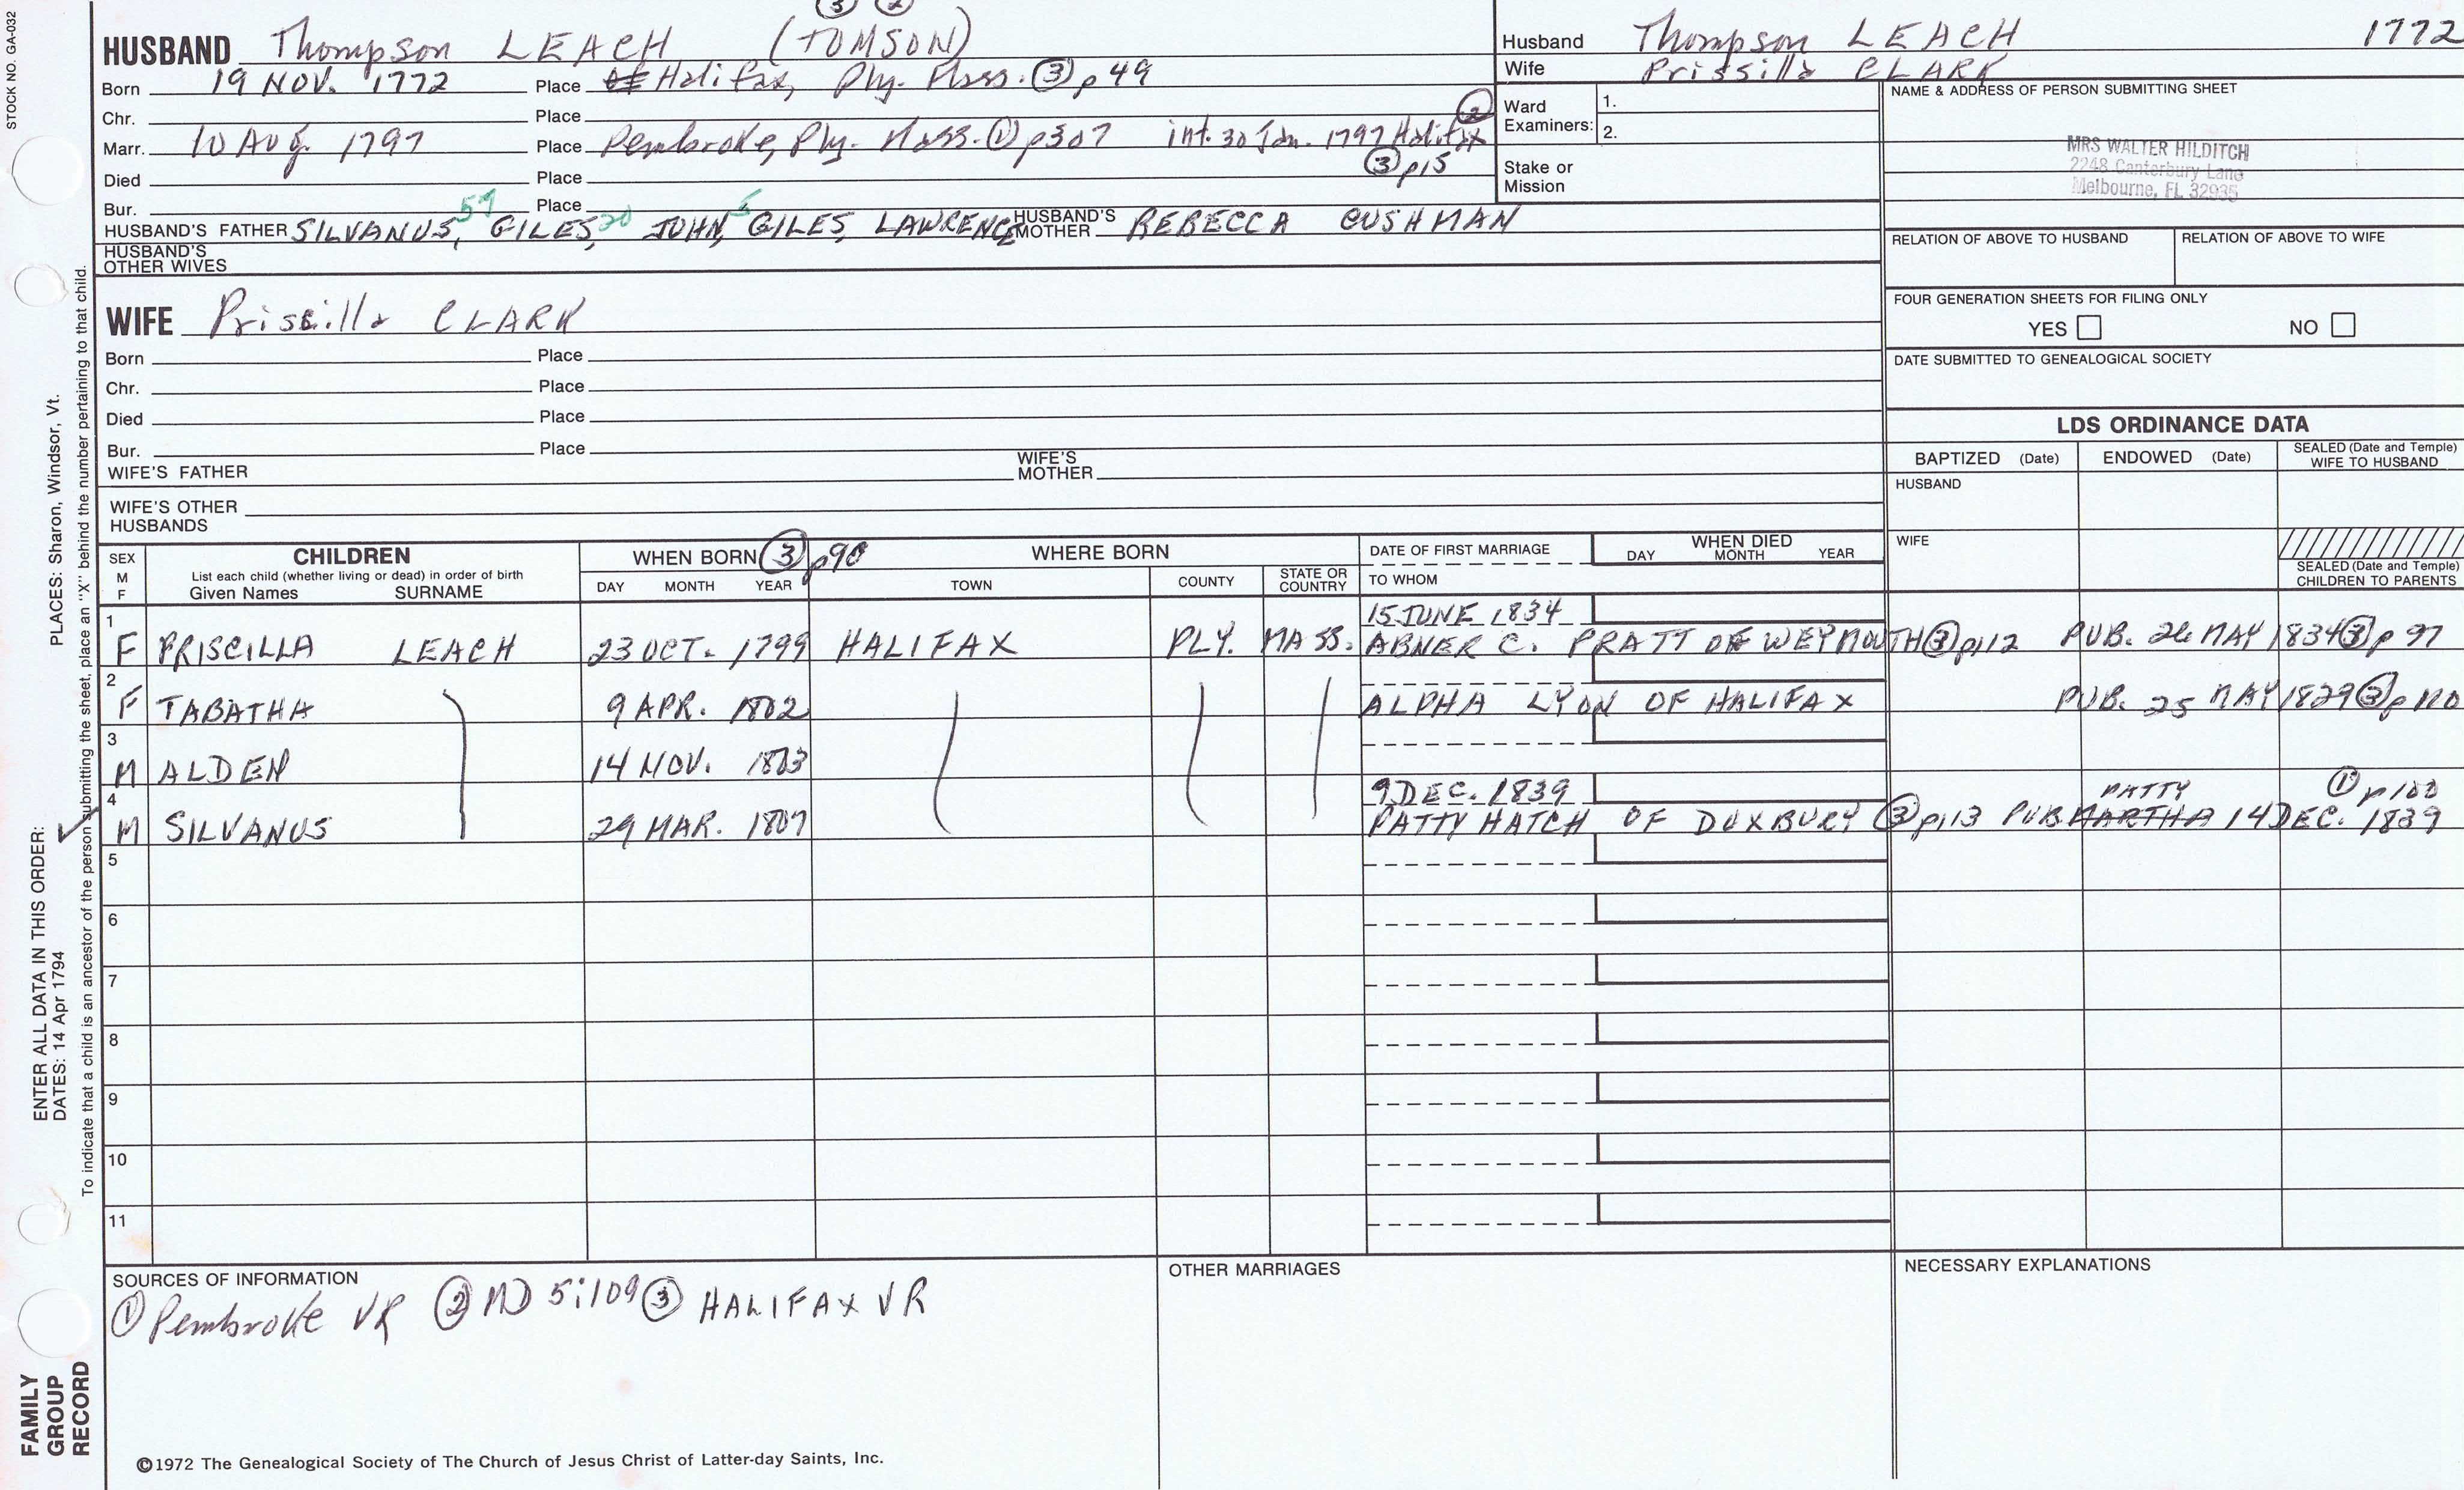 STOCK NO. GA-032
③ ②
HUSBAND Thompson LEACH (TOMSON)
Born 19 NOV. 1772 Place Halifax, Ply. Mass. ③ p 49
Chr. Place
Marr. 10 Aug. 1797 Place Pembroke, Ply. Mass. ① p307 int. 30 Jan. 1797 Halifax ②
③ p15
Died Place
Bur. Place
HUSBAND'S FATHER SILVANUS, 59 GILES, 20 JOHN, 5 GILES, LAWRENCE HUSBAND'S MOTHER REBECCA CUSHMAN
HUSBAND'S OTHER WIVES
Husband Thompson LEACH 1772
Wife Prissilla CLARK
Ward Examiners: 1.
2.
Stake or Mission
NAME & ADDRESS OF PERSON SUBMITTING SHEET
MRS WALTER HILDITCH
2248 Canterbury Lane
Melbourne, FL 32935
RELATION OF ABOVE TO HUSBAND RELATION OF ABOVE TO WIFE
FOUR GENERATION SHEETS FOR FILING ONLY
YES NO
DATE SUBMITTED TO GENEALOGICAL SOCIETY
WIFE Priscilla CLARK
Born Place
Chr. Place
Died Place
Bur. Place
WIFE'S FATHER WIFE'S MOTHER
WIFE'S OTHER HUSBANDS
LDS ORDINANCE DATA
BAPTIZED (Date) ENDOWED (Date) SEALED (Date and Temple) WIFE TO HUSBAND
HUSBAND
WIFE
SEALED (Date and Temple) CHILDREN TO PARENTS
SEX M F
CHILDREN
List each child (whether living or dead) in order of birth
Given Names SURNAME
WHEN BORN ③ p90
DAY MONTH YEAR
WHERE BORN
TOWN COUNTY STATE OR COUNTRY
DATE OF FIRST MARRIAGE
TO WHOM
WHEN DIED
DAY MONTH YEAR
15 JUNE 1834
1 F PRISCILLA LEACH 23 OCT. 1799 HALIFAX PLY. MASS. ABNER C. PRATT OF WEYMOUTH ③ p112 PUB. 26 MAY 1834 ③ p 97
2 F TABATHA 9 APR. 1802 ALPHA LYON OF HALIFAX PUB. 25 MAY 1829 ③ p 110
3 M ALDEN 14 NOV. 1803
9 DEC. 1839 PATTY ① p100
4 M SILVANUS 29 MAR. 1807 PATTY HATCH OF DUXBURY ③ p113 PUB MARTHA 14 DEC. 1839
5
6
7
8
9
10
11
SOURCES OF INFORMATION
① Pembroke VR ② MD 5:109 ③ HALIFAX VR
OTHER MARRIAGES
NECESSARY EXPLANATIONS
©1972 The Genealogical Society of The Church of Jesus Christ of Latter-day Saints, Inc.
FAMILY GROUP RECORD
ENTER ALL DATA IN THIS ORDER:
DATES: 14 Apr 1794
PLACES: Sharon, Windsor, Vt.
To indicate that a child is an ancestor of the person submitting the sheet, place an "X" behind the number pertaining to that child.